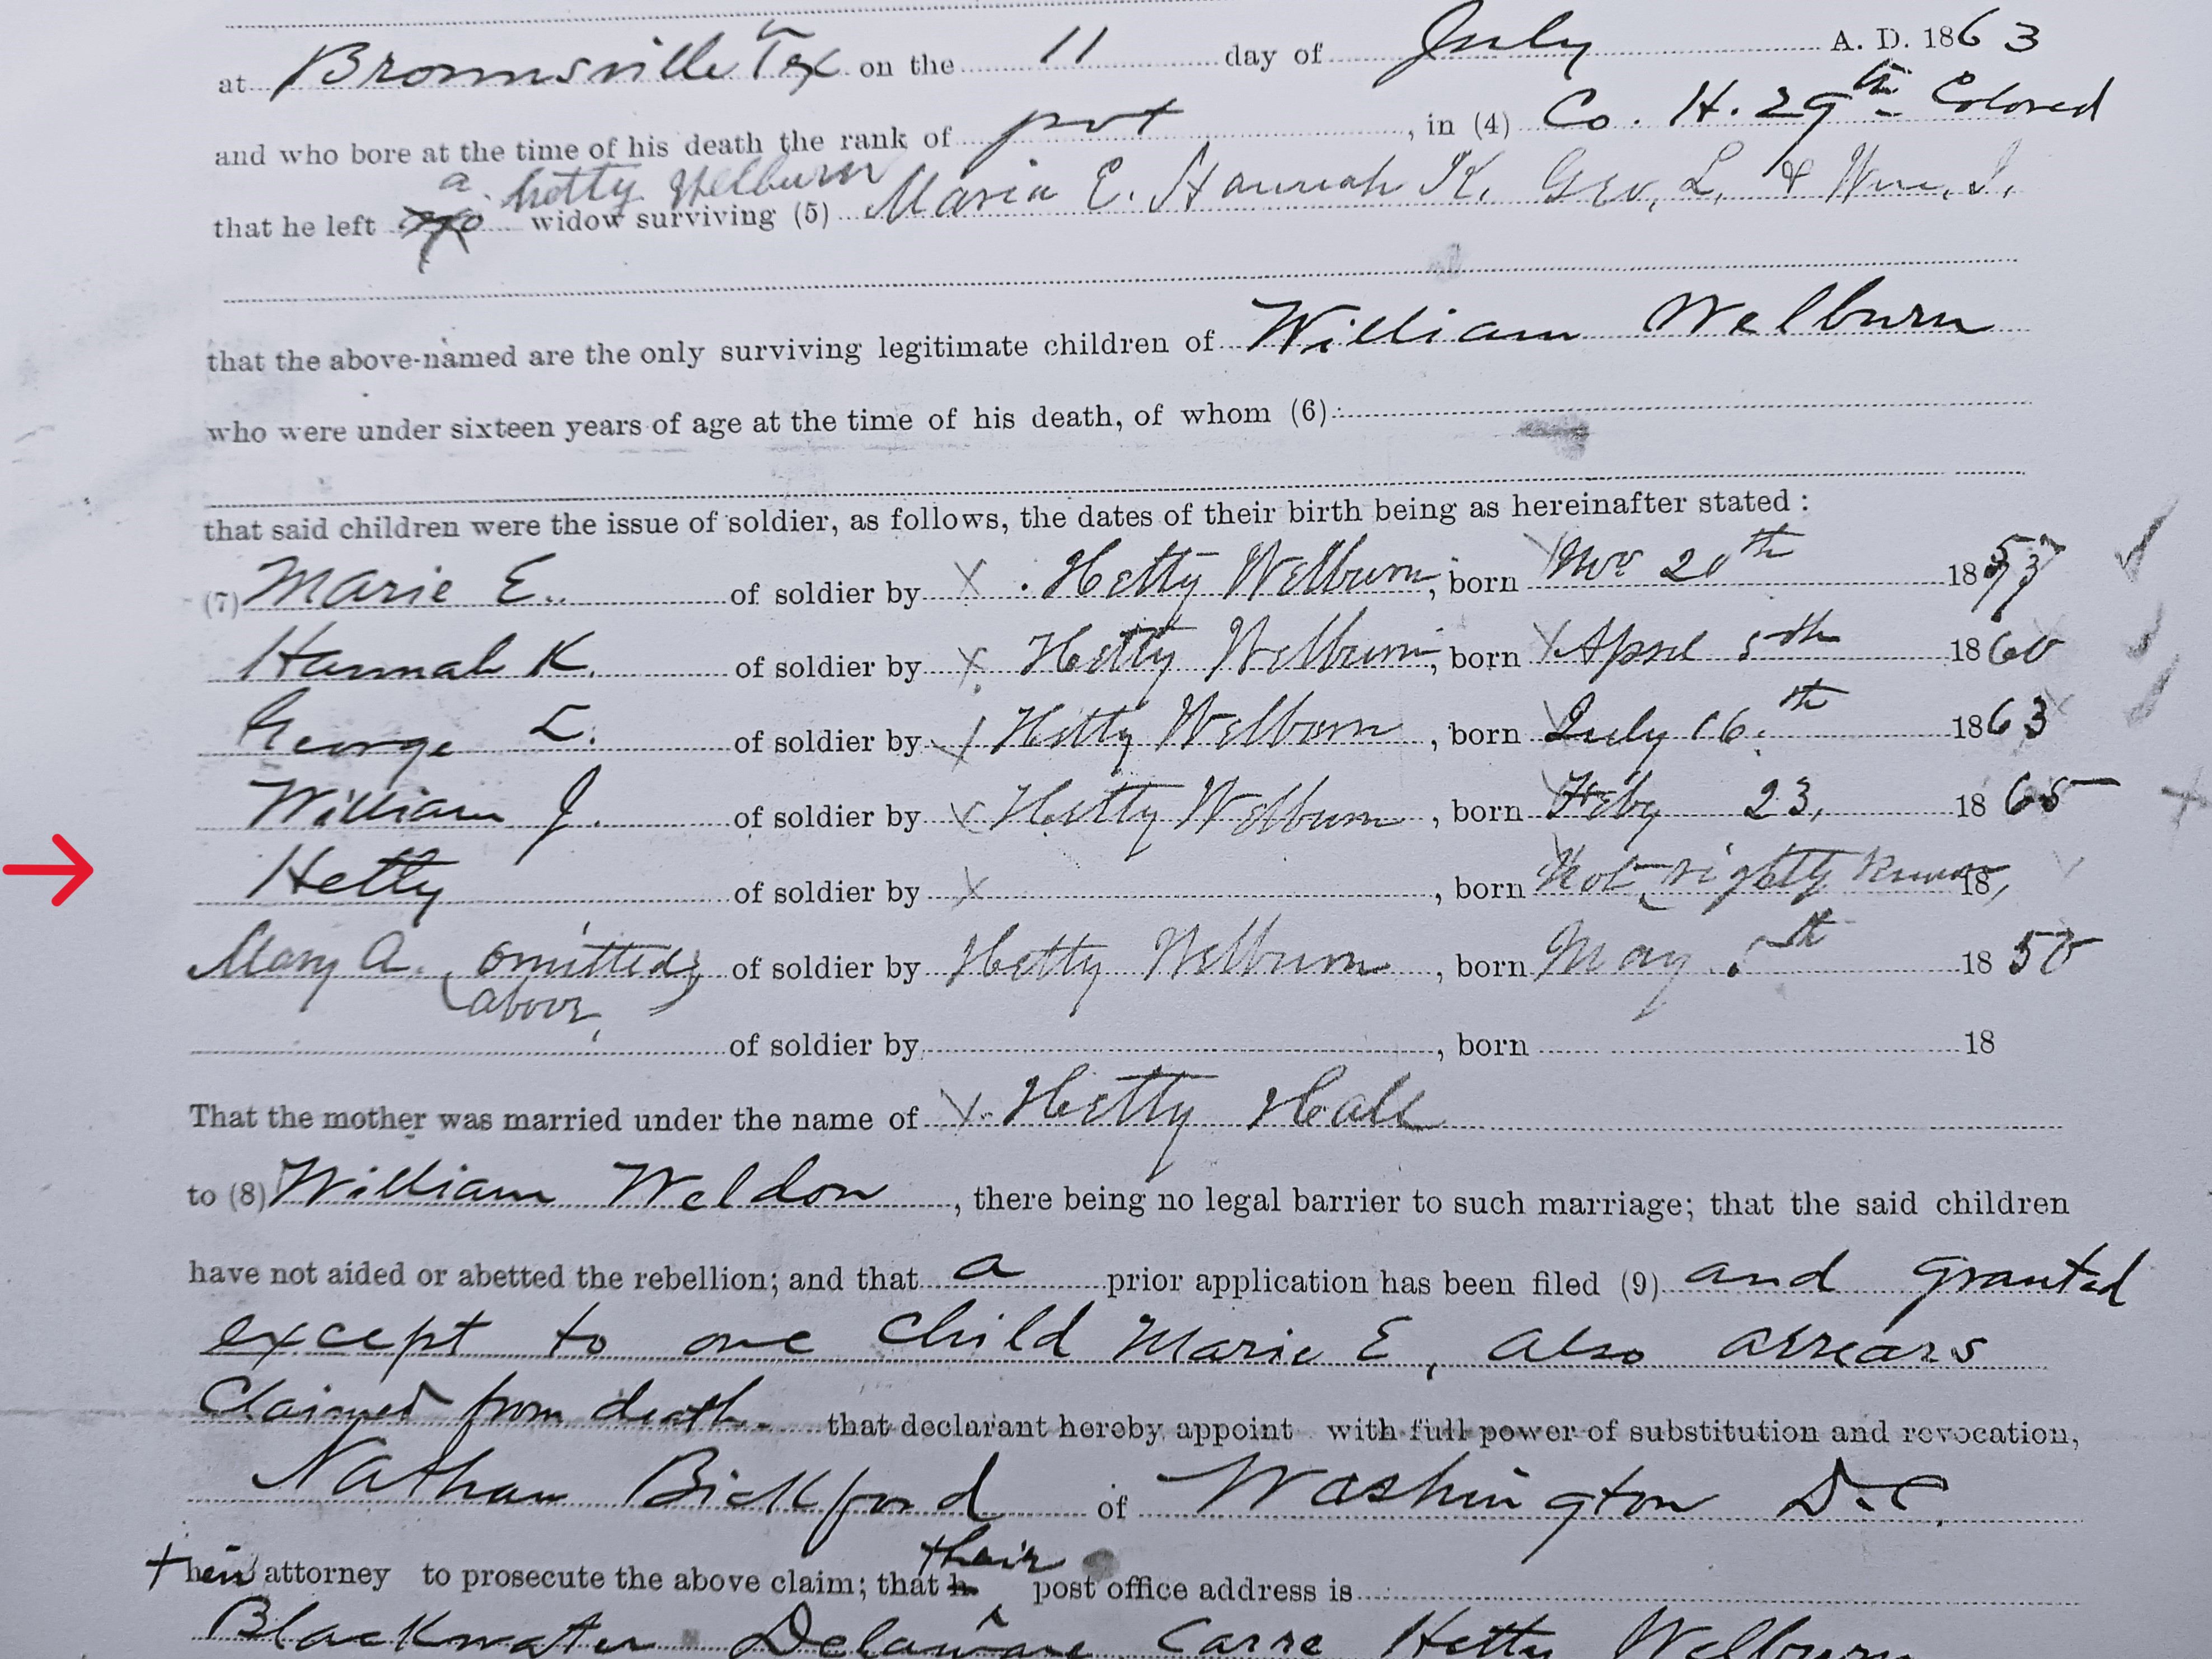 at Brownsville Tex on the 11 day of July A. D. 1863
and who bore at the time of his death the rank of pvt, in (4) Co. H. 29th Colored
a Hetty Welburn
that he left widow surviving (5) Maria E. Hannah K. Geo. L. & Wm. J.
that the above-named are the only surviving legitimate children of William Welburn
who were under sixteen years of age at the time of his death, of whom (6)
that said children were the issue of soldier, as follows, the dates of their birth being as hereinafter stated :
(7) Marie E. of soldier by X Hetty Welburn, born X Nov 20th 18
Hannah K. of soldier by X Hetty Welburn, born X April 5th 1860
George L. of soldier by X Hetty Welburn, born X July 16th 1863 X
William J. of soldier by X Hetty Welburn, born X Feby 23, 1865 X
Hetty of soldier by X , born X Not rightly known 18 X
Mary A. (omitted) of soldier by Hetty Welburn, born May 5th 1850
above,
of soldier by , born 18
That the mother was married under the name of X Hetty Hall
to (8) William Weldon, there being no legal barrier to such marriage; that the said children
have not aided or abetted the rebellion; and that a prior application has been filed (9) and granted
except to one child Marie E, also arrears
Claimed from death. that declarant hereby appoint with full power of substitution and revocation,
Nathan Bickford of Washington D.C.
their
their attorney to prosecute the above claim; that h post office address is
Blackwater Delaware Carre Hetty Welburn